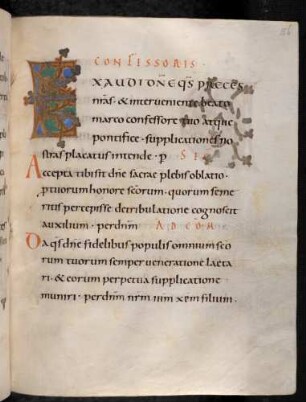 CONFESSORIS
EXAUDI DNE QS PRECES
nras · & interveniente beato
marco confessore tuo atque
pontifice · supplicationes no
stras placatus intende · p
Accepta tibi sit dne sacrae plebis oblatio ·
p tuorum honore scorum · quorum se me
ritis percepisse de tribulatione cognoscit
auxilium · per dnm AD COM
Da qs dne fidelibus populis omnium sco
rum tuorum semper veneratione laeta
ri · & eorum perpetua supplicatione
muniri · per dnm nrm ihm xpm filium ·